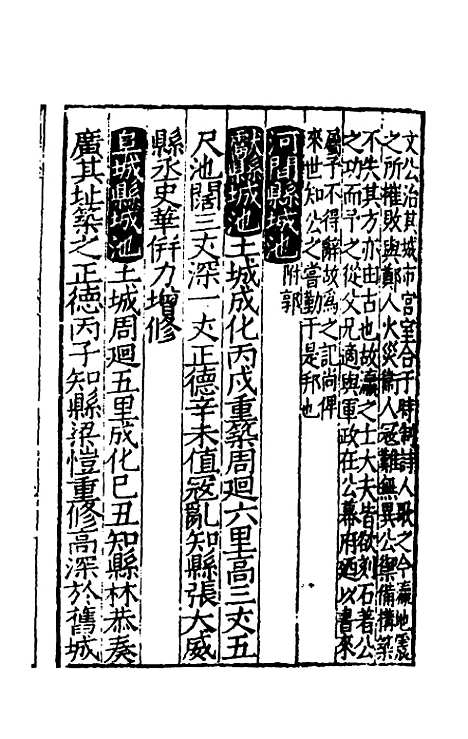 文公治其城市宮室合于時制詩人歌之今瀛地震
之所摧敗與鄭人火災衞人寇難無異公禦備構築
不失其方亦由古也故瀛之士大夫皆欲刻石著公
之功而予之從父兄適與軍政在公幕府廼以書來
屬予不得辭故為之記尚俾
來世知公之嘗勤于是邦也
河間縣城池附郭
獻縣城池土城成化丙戌重築周廻六里高三丈五
尺池闊三丈深一丈正德辛未值寇亂知縣張大威
縣丞史華併力增修
阜城縣城池土城周廻五里成化己丑知縣林恭奏
廣其址築之正德丙子知縣梁愷重修高深於舊城